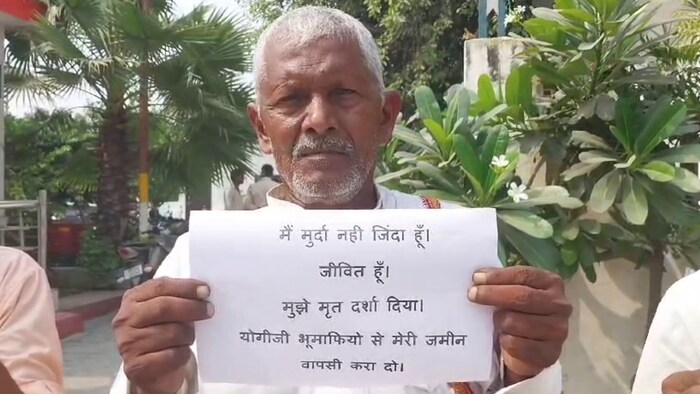 मैं मुर्दा नही जिंदा हूँ।
जीवित हूँ।
मुझे मृत दर्शा दिया।
योगीजी भूमाफियो से मेरी जमीन
वापसी करा दो।